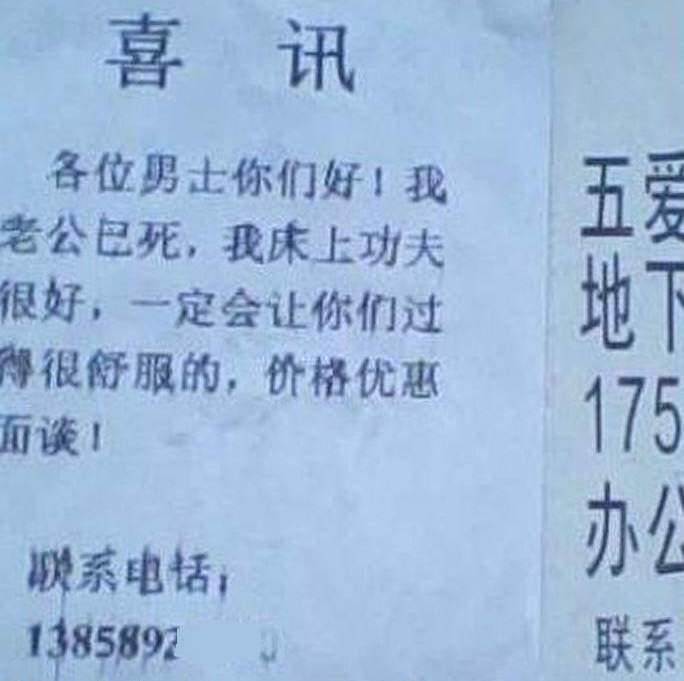 喜 讯
各位男士你们好！我
老公已死，我床上功夫
很好，一定会让你们过
得很舒服的，价格优惠
面谈！
联系电话；
1385892
五爱
地下
175
办公
联系